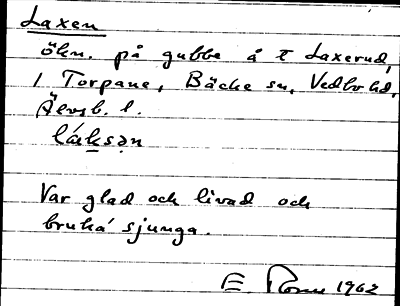 Laxen
ökn. på gubbe å t Laxerud,
i Torpane, Bäcke sn, Vedbo hd,
Älvsb. l.
láksən
Var glad och livad och
bruka' sjunga.
E. 1962